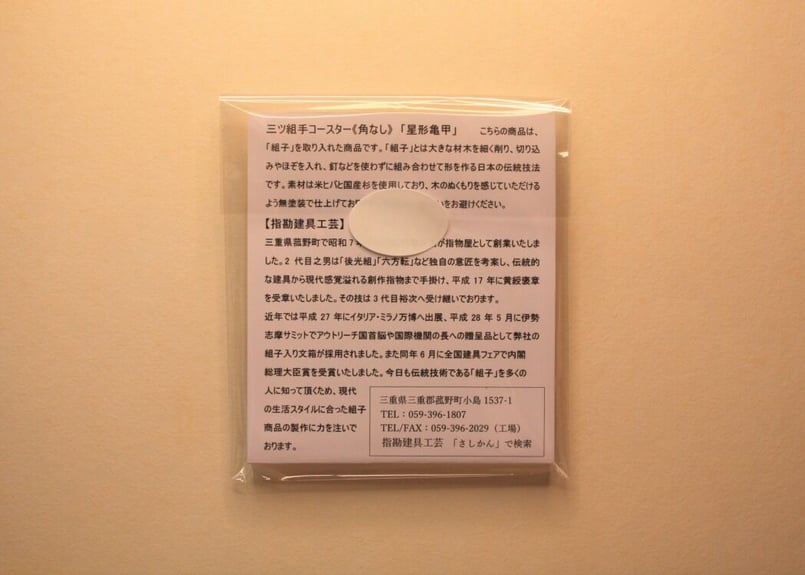 三ツ組手コースター《角なし》「星形亀甲」　こちらの商品は、
「組子」を取り入れた商品です。「組子」とは大きな材木を細く削り、切り込
みやほぞを入れ、釘などを使わずに組み合わせて形を作る日本の伝統技法
です。素材は米ヒバと国産杉を使用しており、木のぬくもりを感じていただける
よう無塗装で仕上げてお をお避けください。
【指勘建具工芸】
三重県菰野町で昭和 7 が指物屋として創業いたしま
した。2 代目之男は「後光組」「六方転」など独自の意匠を考案し、伝統的
な建具から現代感覚溢れる創作指物まで手掛け、平成 17 年に黄綬褒章
を受章いたしました。その技は 3 代目裕次へ受け継いでおります。
近年では平成 27 年にイタリア・ミラノ万博へ出展、平成 28 年 5 月に伊勢
志摩サミットでアウトリーチ国首脳や国際機関の長への贈呈品として弊社の
組子入り文箱が採用されました。また同年 6 月に全国建具フェアで内閣
総理大臣賞を受賞いたしました。今日も伝統技術である「組子」を多くの
人に知って頂くため、現代
の生活スタイルに合った組子
商品の製作に力を注いで
おります。
三重県三重郡菰野町小島 1537-1
TEL：059-396-1807
TEL/FAX：059-396-2029（工場）
指勘建具工芸　「さしかん」で検索